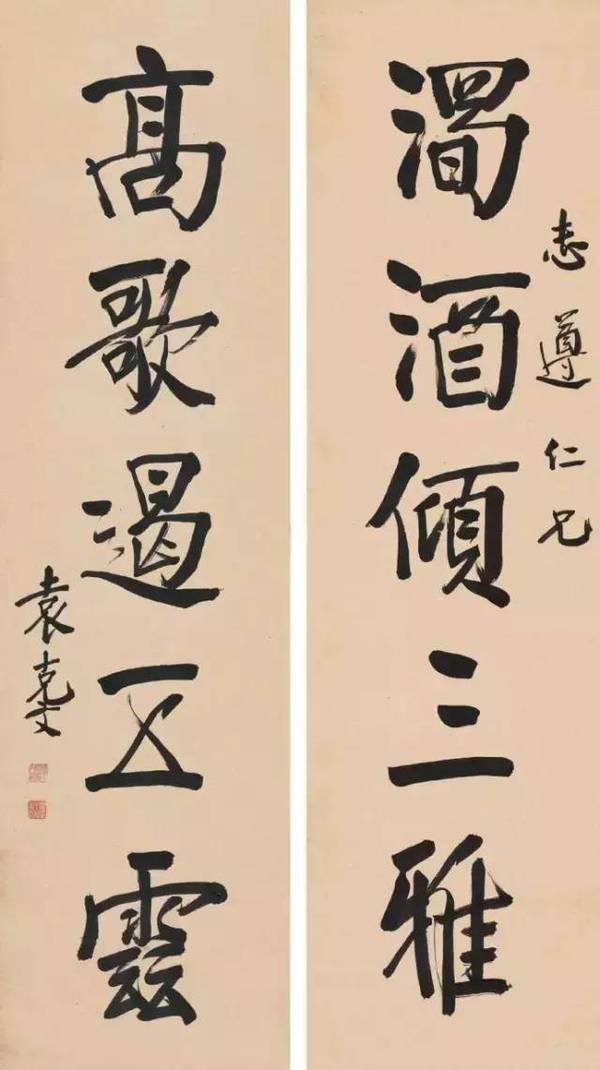 志遵仁兄
濁酒傾三雅
高歌遏五雲
袁克文